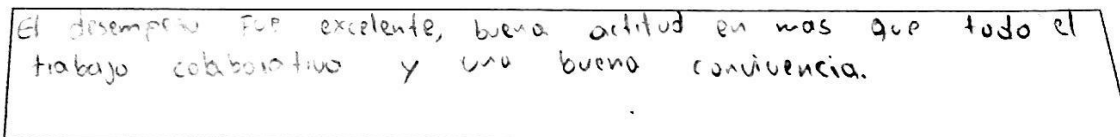 El desempeño Fue excelente, buena actitud en mas que todo el
trabajo colaborativo y una buena convivencia.